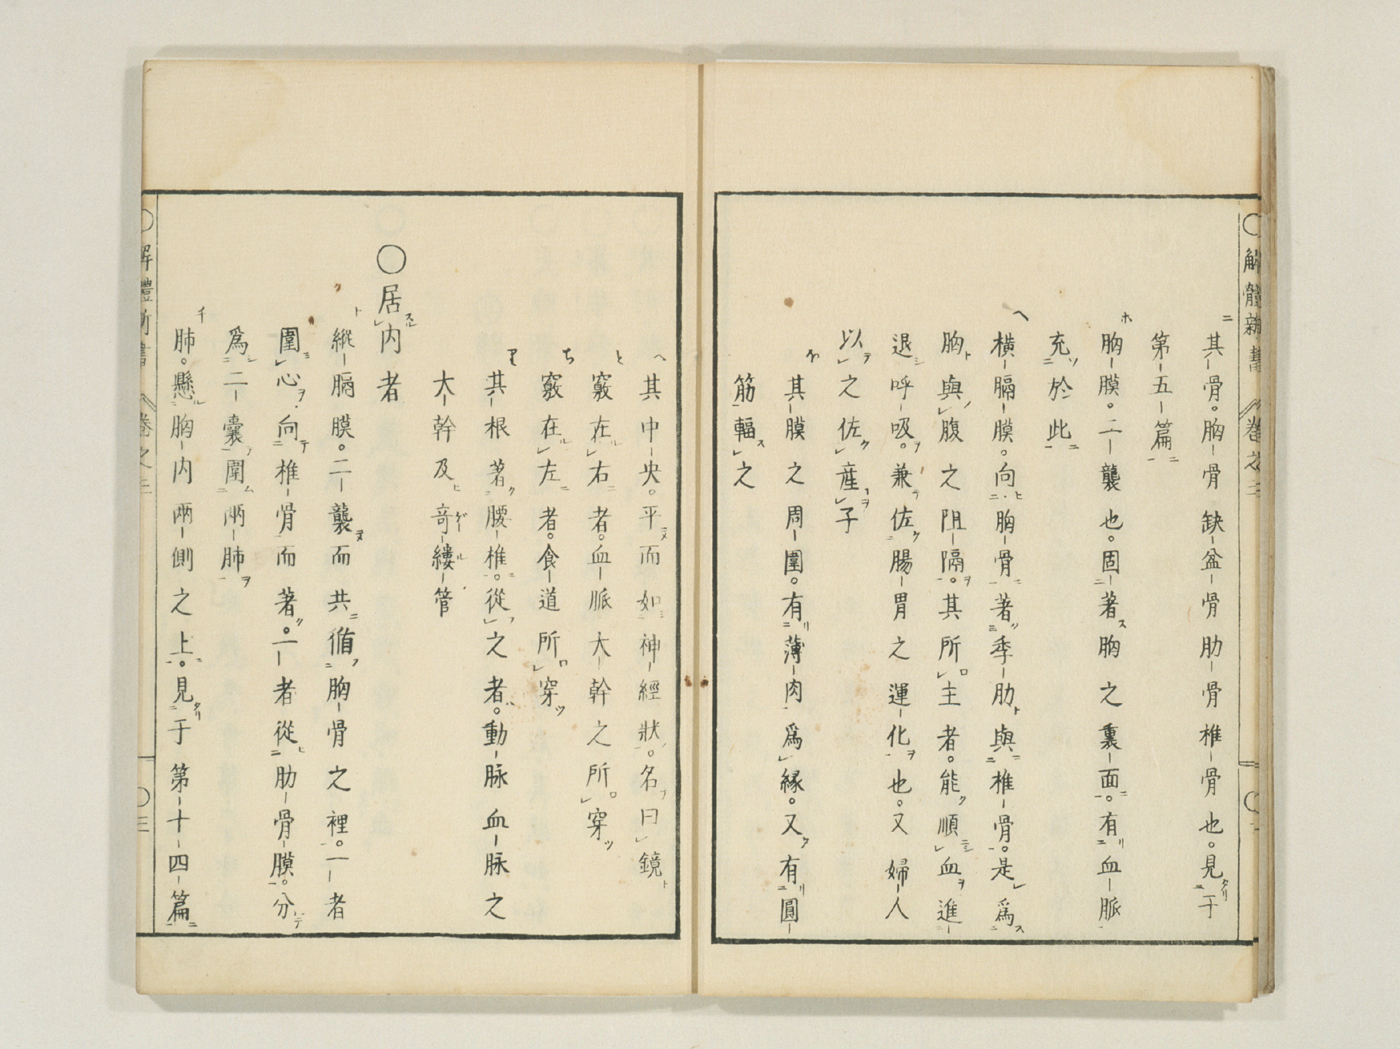 〇解體新書 巻之三 〇二
ニ 其骨。胸骨缺盆骨肋骨椎骨也。見于
第五篇
ホ 胸膜。二襲也。固著胸之裏面。有血脈
充於此
ヘ 横膈膜。向胸骨著季肋與椎骨。是爲
胸與腹之阻隔。其所主者。能順血進
退呼吸。兼佐腸胃之運化也。又婦人
以之佐産子
ほ 其膜之周圍。有薄肉爲縁。又有圓
筋輻之
へ 其中央。平而如神經狀。名曰鏡
と 竅在右者。血脈大幹之所穿
ち 竅在左者。食道所穿
り 其根著腰椎。從之者。動脉血脉之
大幹及竒縷管
〇居内者
ト 縱膈膜。二襲而共循胸骨之裡。一者
圍心。向椎骨而著。一者從肋骨膜。分
爲二嚢圍兩肺
チ 肺。懸胸内兩側之上。見于第十四篇
〇解體新書 巻之三 〇三